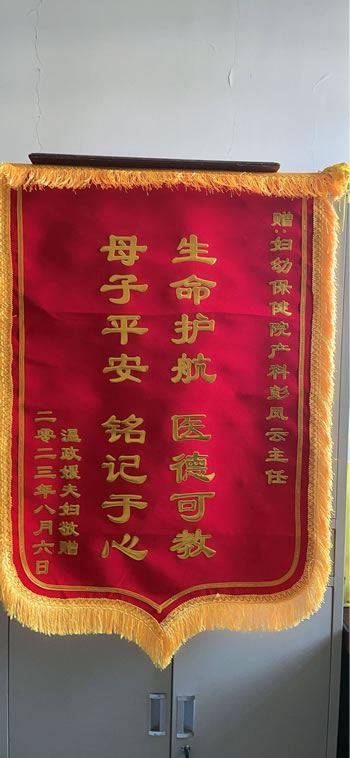 赠：妇幼保健院产科彭凤云主任
生命护航 医德可教
母子平安 铭记于心
温政媛夫妇敬赠
二零二三年八月六日